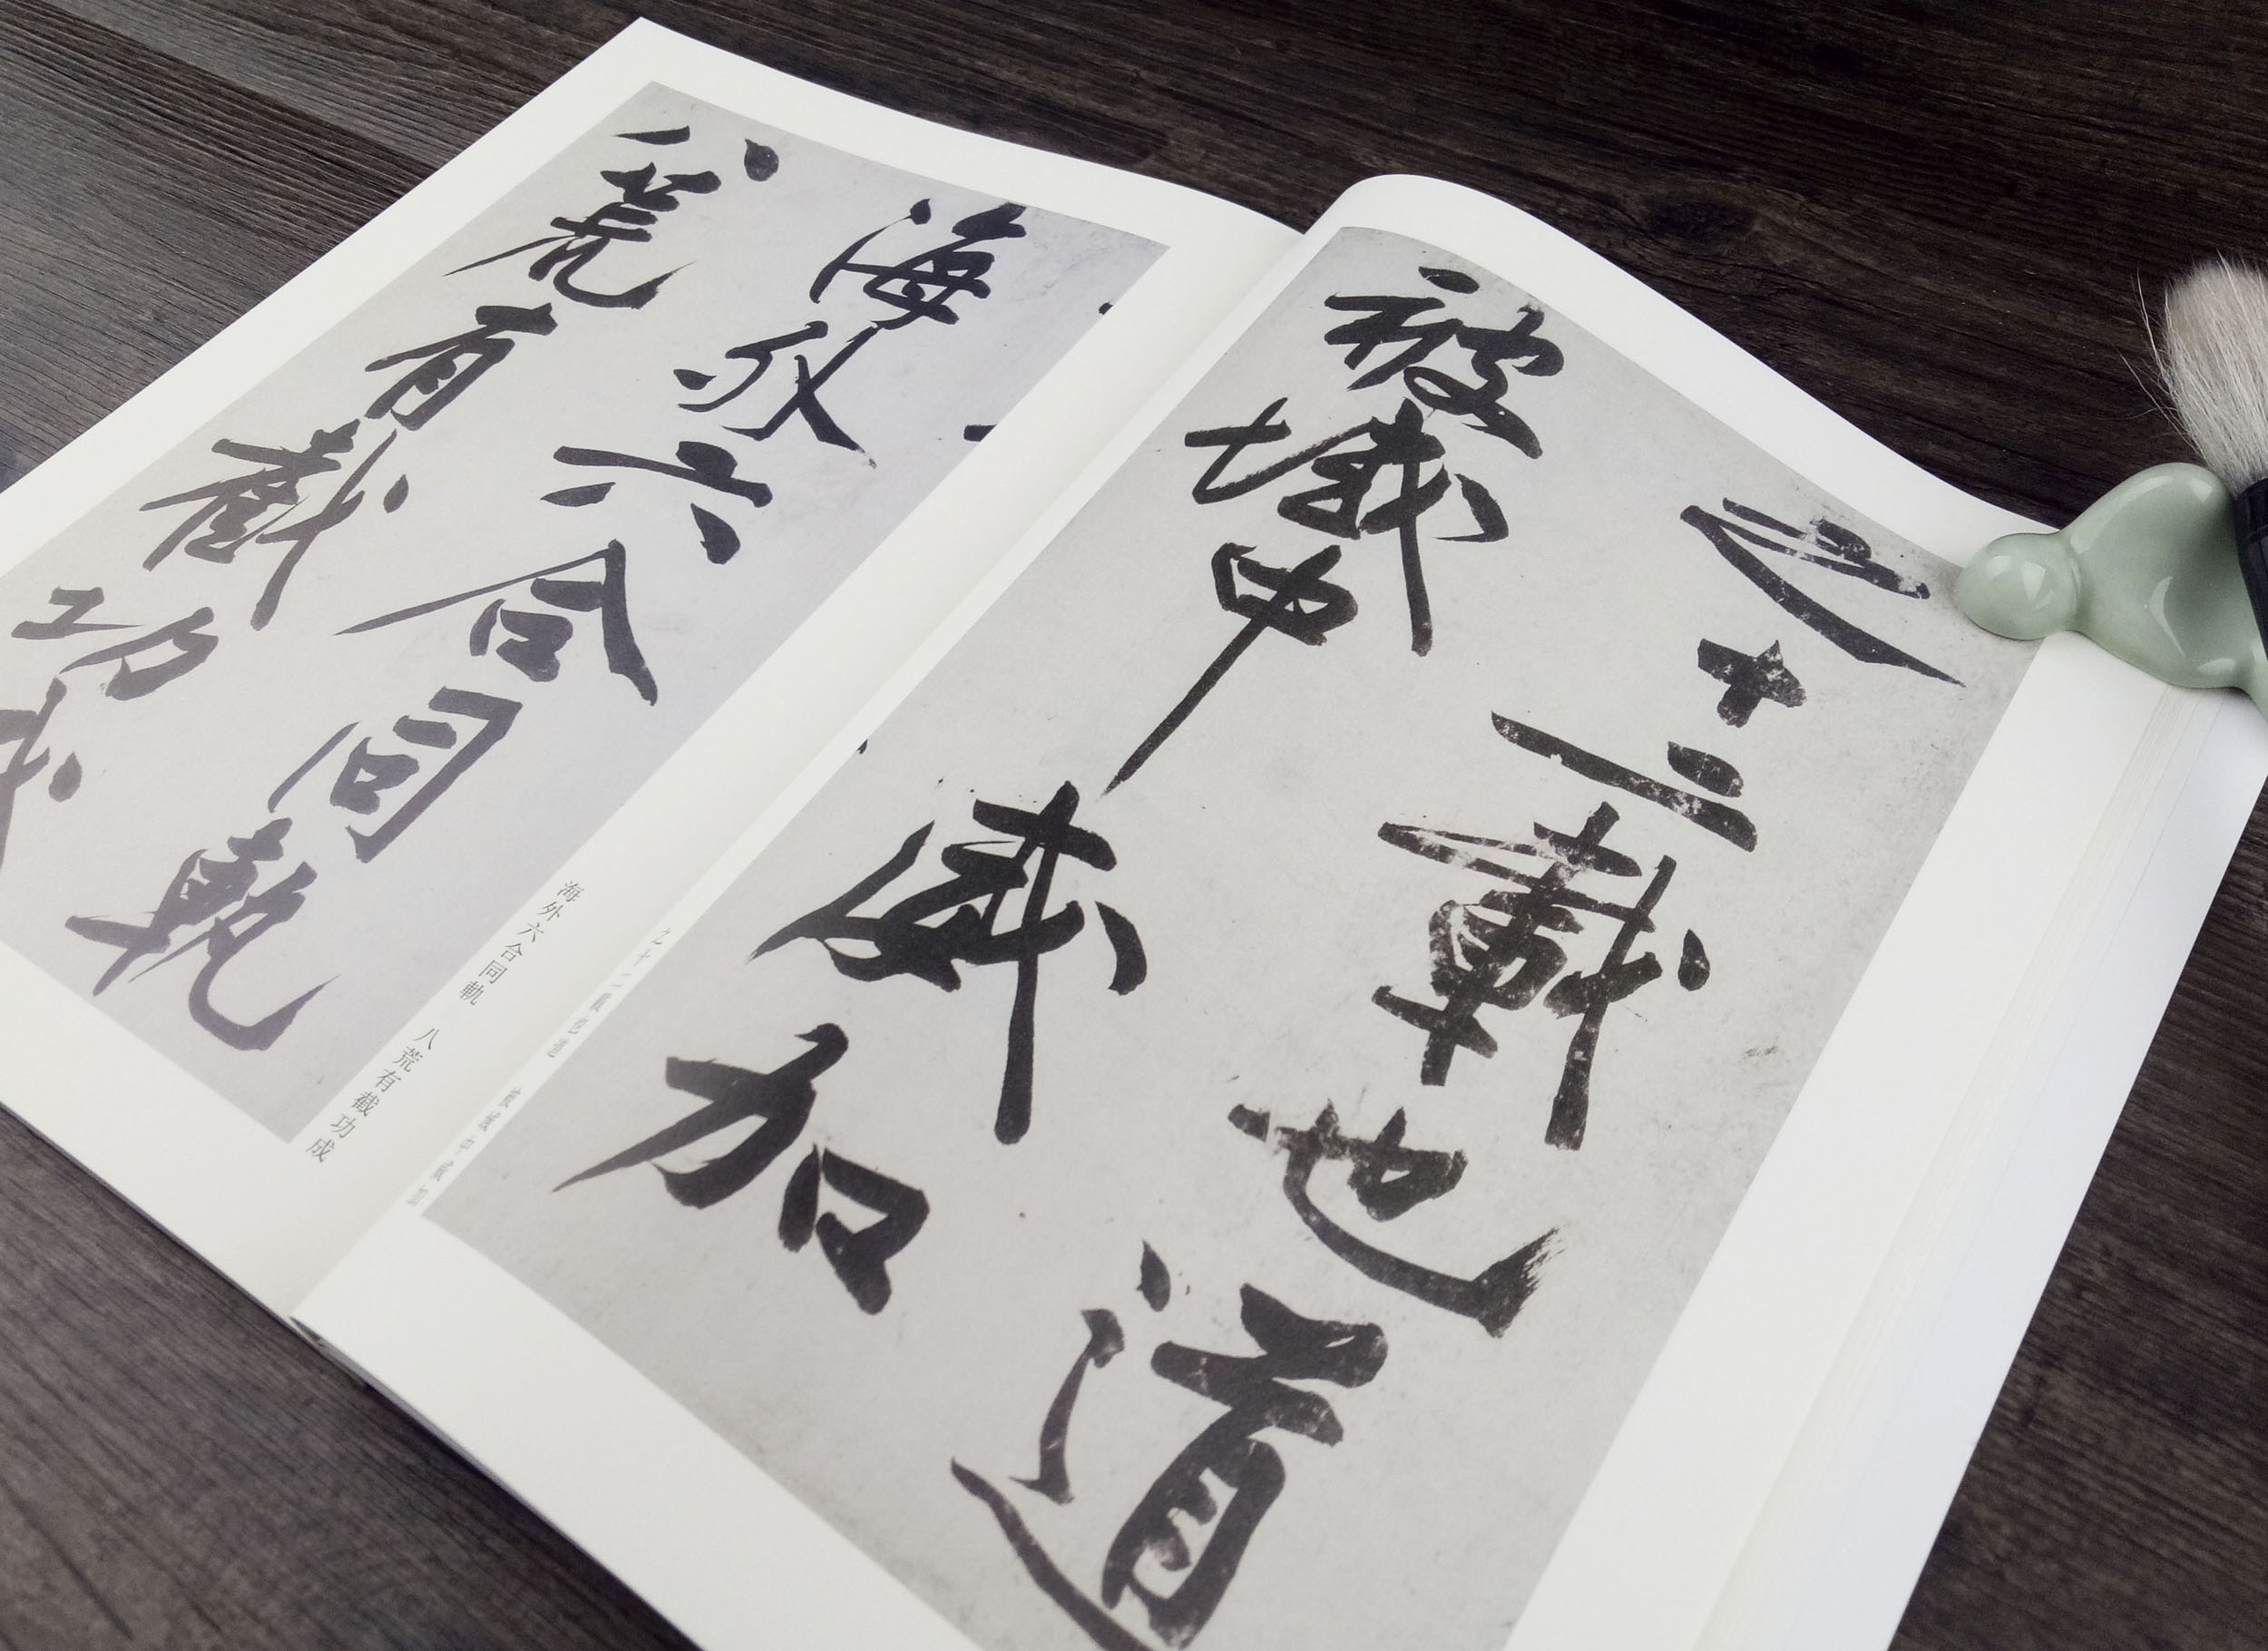 之十三載也道
被域中威加
海外六合同軌
八荒有截功成
海外六合同軌 八荒有截功成